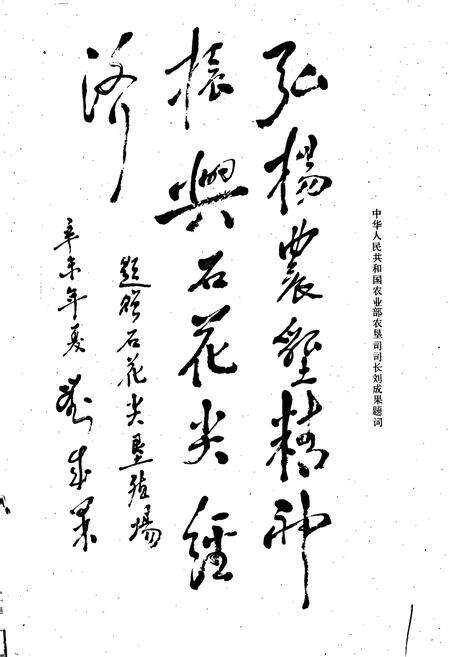 中华人民共和国农业部农垦司司长刘成果题词
弘揚農墾精神
振興石花尖經
济
题赠石花尖垦殖場
辛未年夏 刘成果